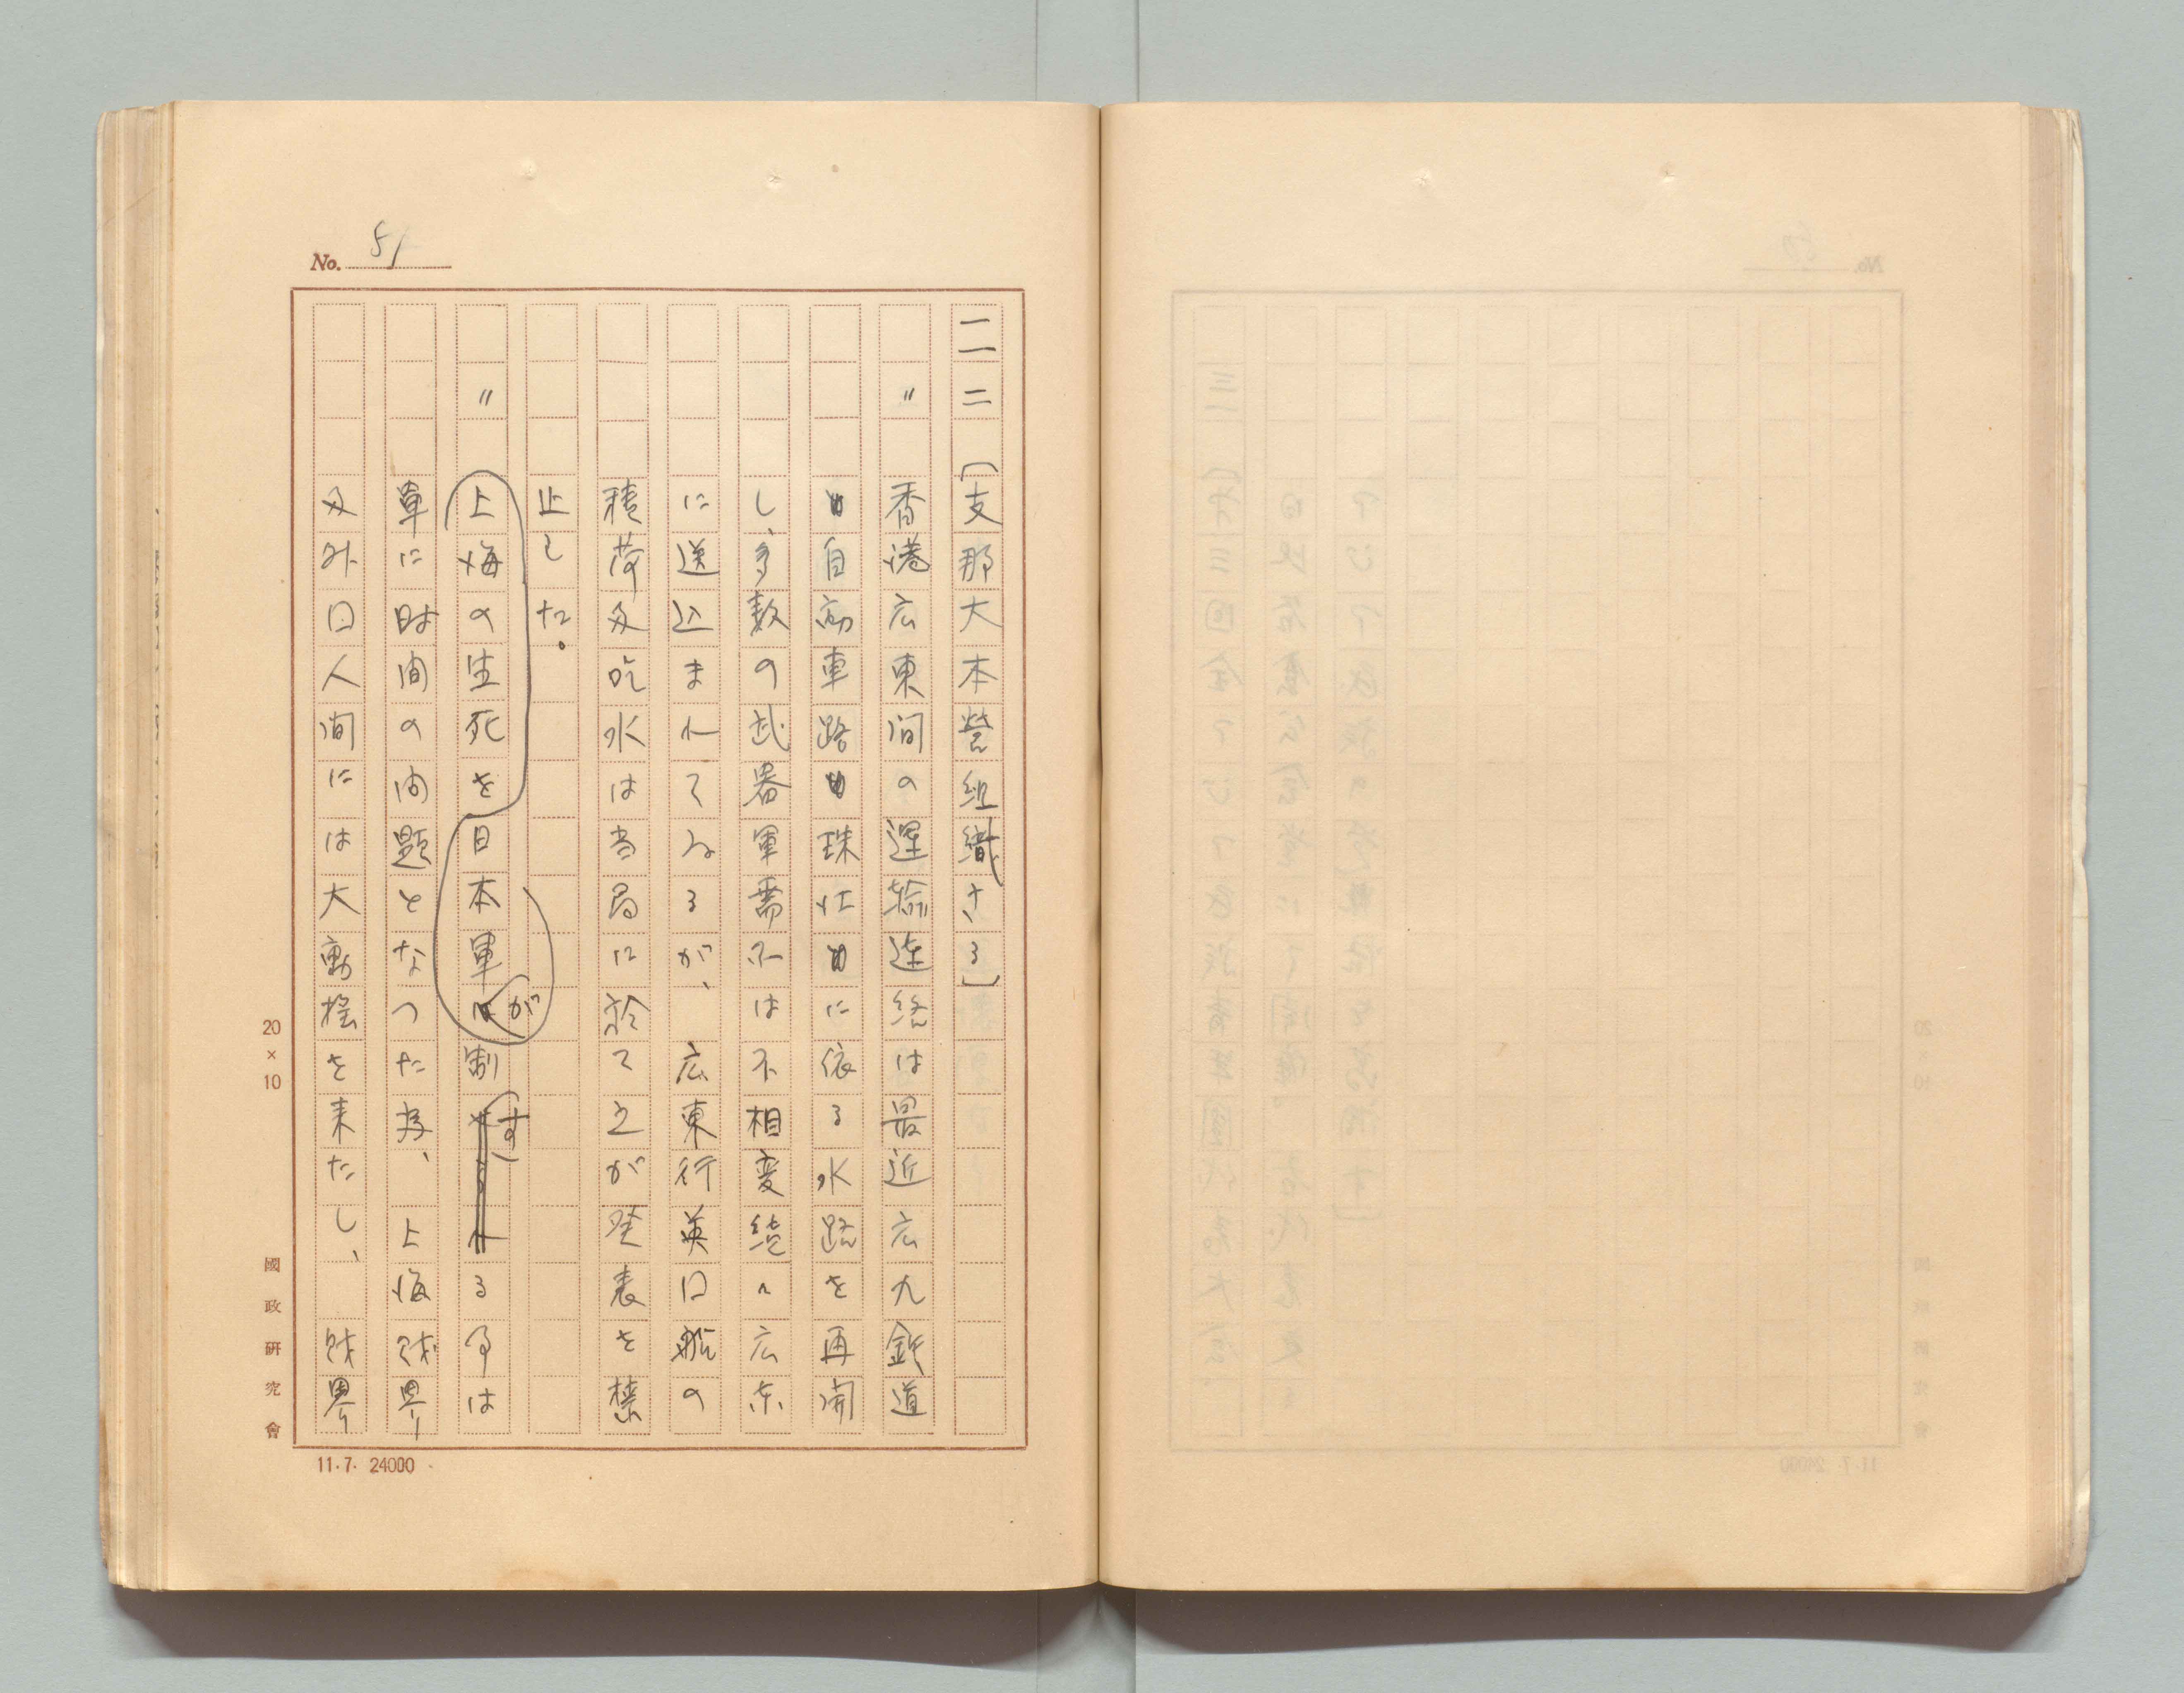 No. 51
二二〔支那大本營組織さる〕
〃香港広東間の運輸連絡は最近広九鉄道
自動車路珠江に依る水路を再開
し、多数の武器軍需品は不相変続々広東
に送込まれてゐるが、広東行英国船の
積荷及吃水は当局に於て之が発表を禁
止した。
〃上海の生死を日本軍が制する事は
単に時間の問題となつた為、上海財界
及外国人間には大動揺を来たし、財界
20×10
國政研究會
11.7. 24000